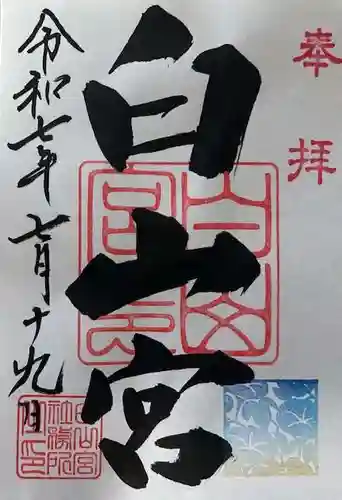 奉拝
白山宮
令和七年七月十九日
白山宮印
白山宮社務所之印